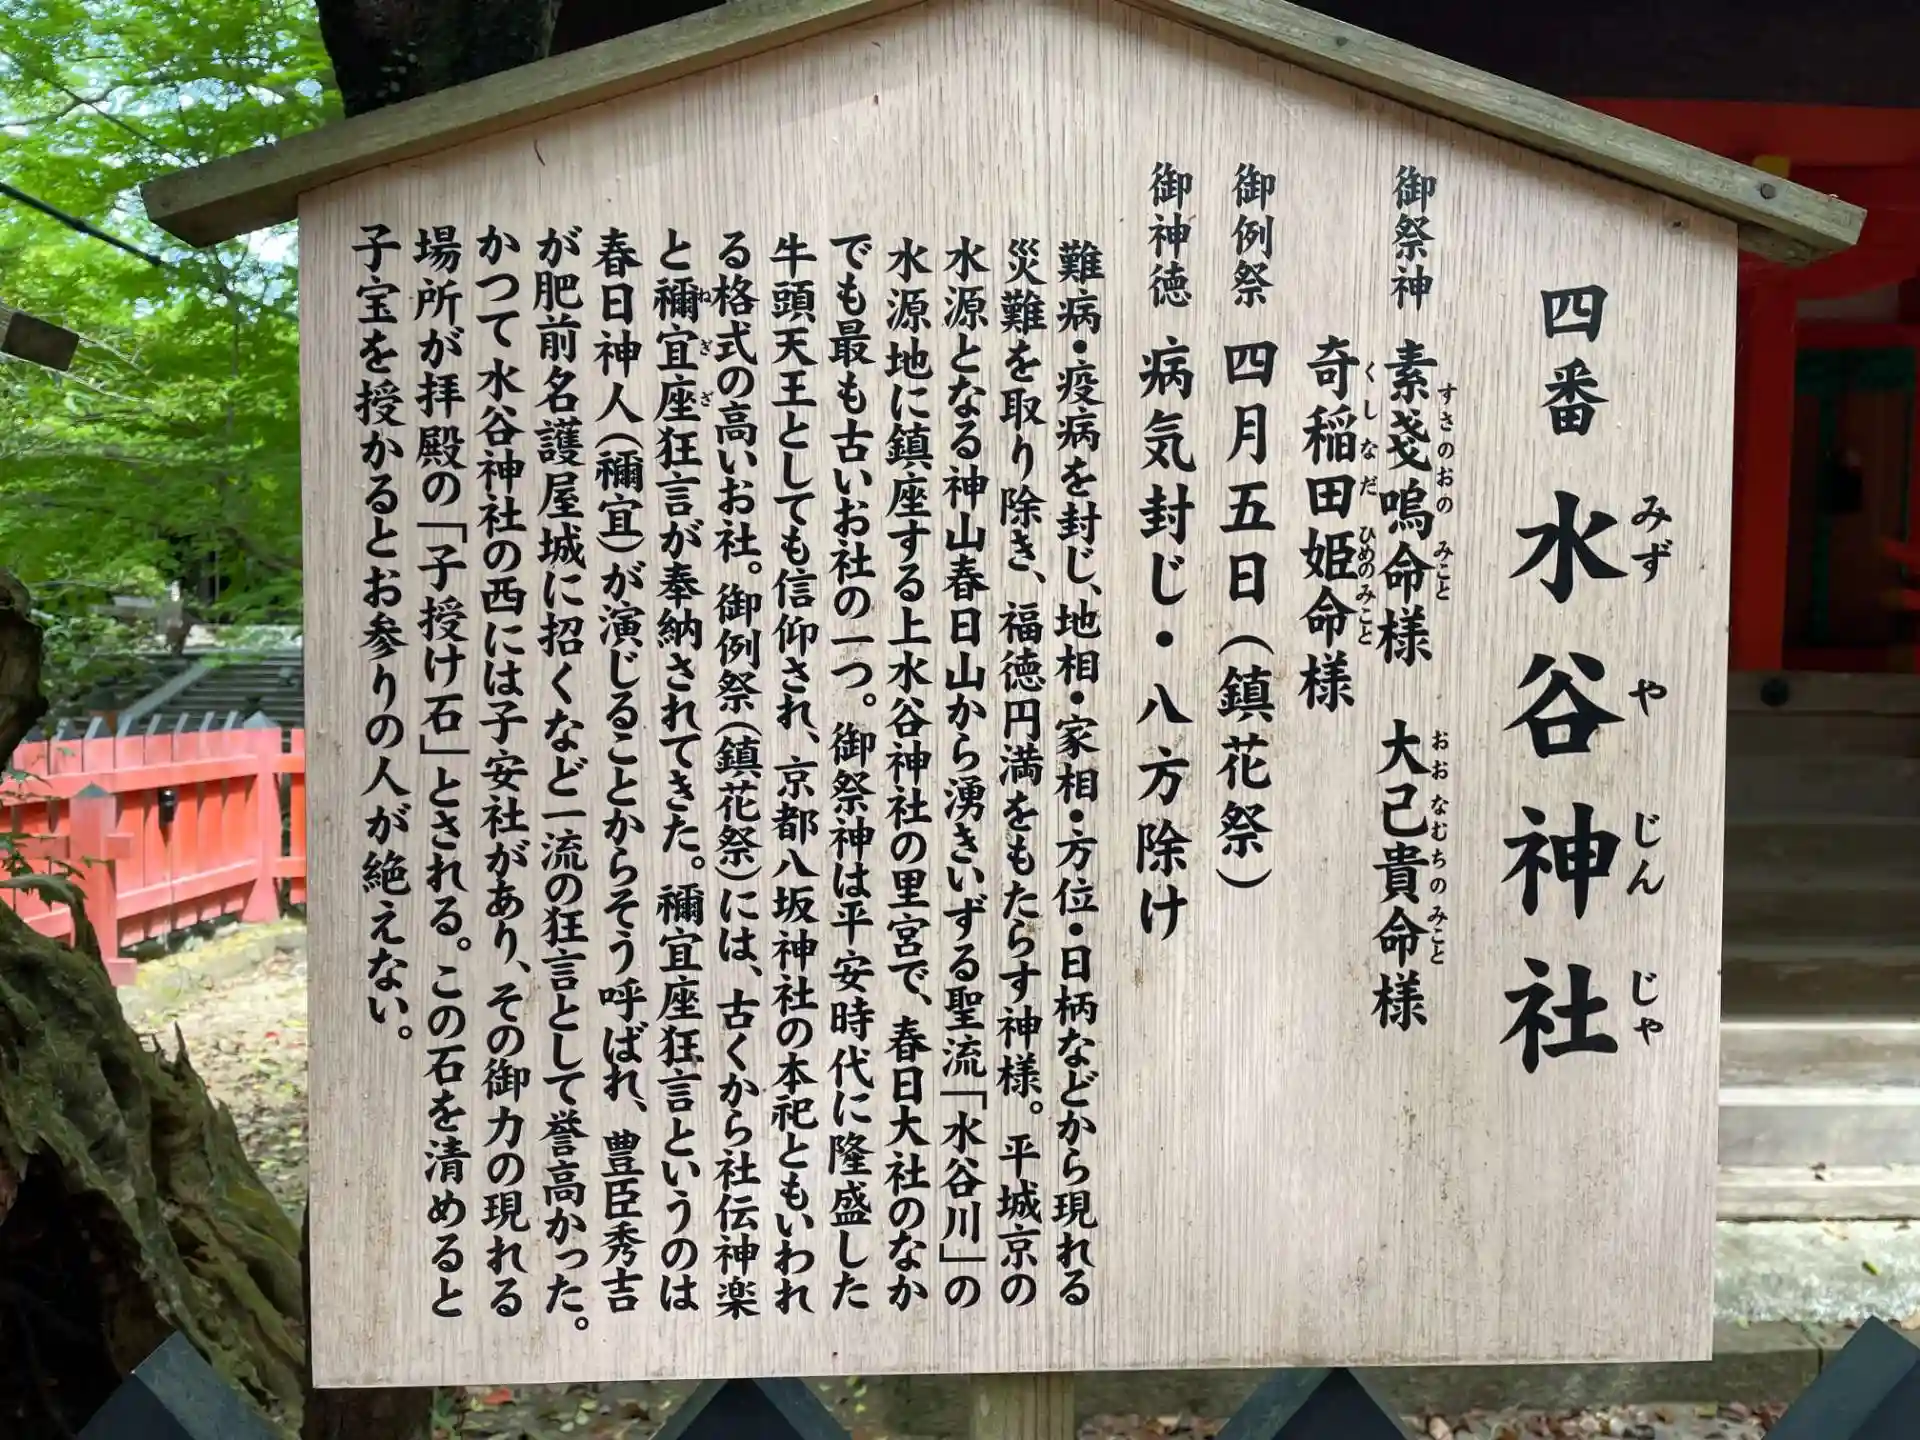 四番 水谷神社
みずやじんじゃ
御祭神 素戔嗚命様 大己貴命様
すさのおのみこと おおなむちのみこと
奇稲田姫命様
くしなだひめのみこと
御例祭 四月五日(鎮花祭)
御神徳 病気封じ・八方除け
難病・疫病を封じ、地相・家相・方位・日柄などから現れる
災難を取り除き、福徳円満をもたらす神様。平城京の
水源となる神山春日山から湧きいずる聖流「水谷川」の
水源地に鎮座する上水谷神社の里宮で、春日大社のなか
でも最も古いお社の一つ。御祭神は平安時代に隆盛した
牛頭天王としても信仰され、京都八坂神社の本祀ともいわれ
る格式の高いお社。御例祭(鎮花祭)には、古くから社伝神楽
と禰宜座狂言が奉納されてきた。禰宜座狂言というのは
ねぎざ
春日神人(禰宜)が演じることからそう呼ばれ、豊臣秀吉
が肥前名護屋城に招くなど一流の狂言として誉高かった。
かつて水谷神社の西には子安社があり、その御力の現れる
場所が拝殿の「子授け石」とされる。この石を清めると
子宝を授かるとお参りの人が絶えない。